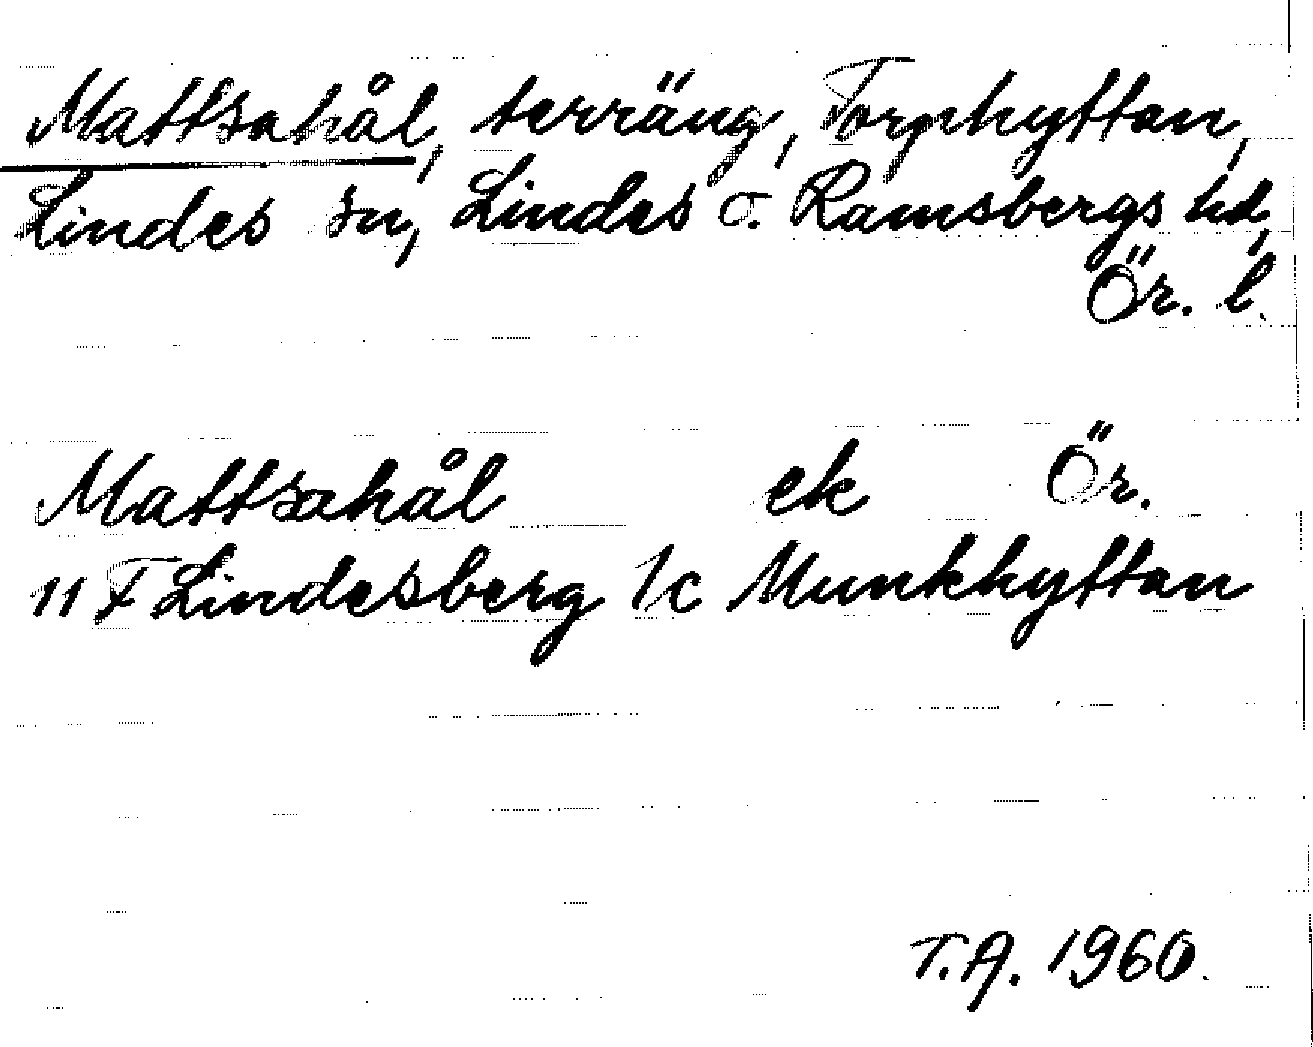 Mattsahål, terräng, Torphyttan,
Lindes sn, Lindes o. Ramsbergs hd,
Ör. l.
Mattsahål ek Ör.
11 F Lindesberg 1c Munkhyttan
T.A. 1960.